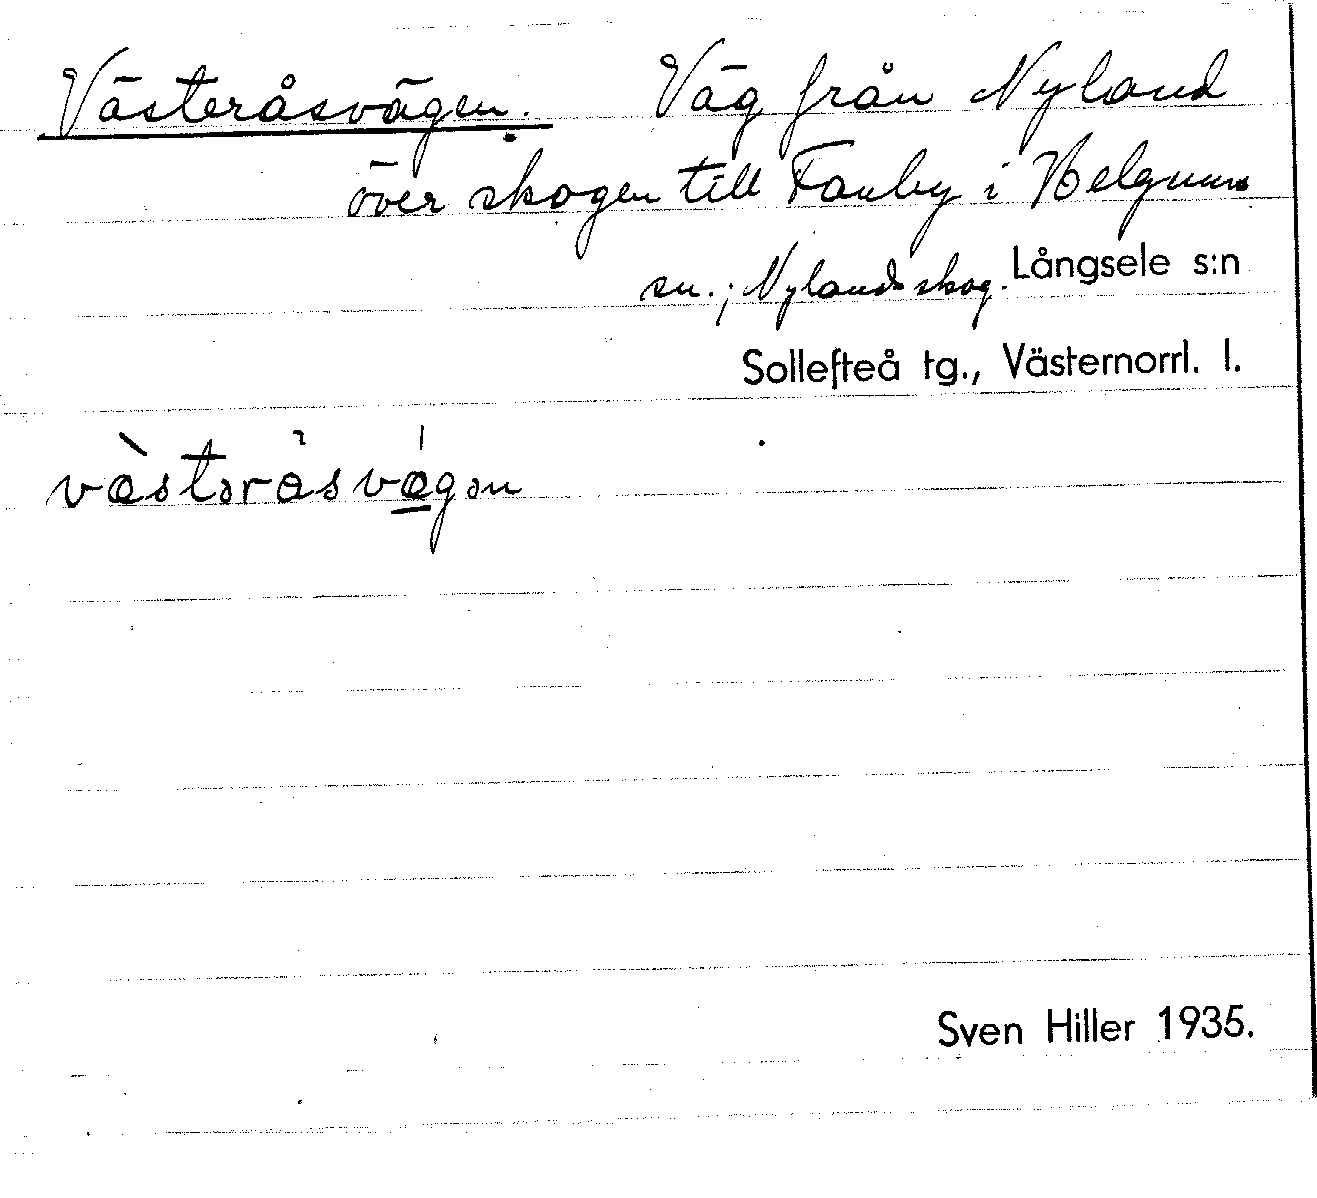 Västeråsvägen. Väg från Nyland
över skogen till Fanby i Helgums
sn.; Nylands skog. Långsele s:n
Sollefteå tg., Västernorrl. l.
væ̀stəråsvǽ̱gən
Sven Hiller 1935.